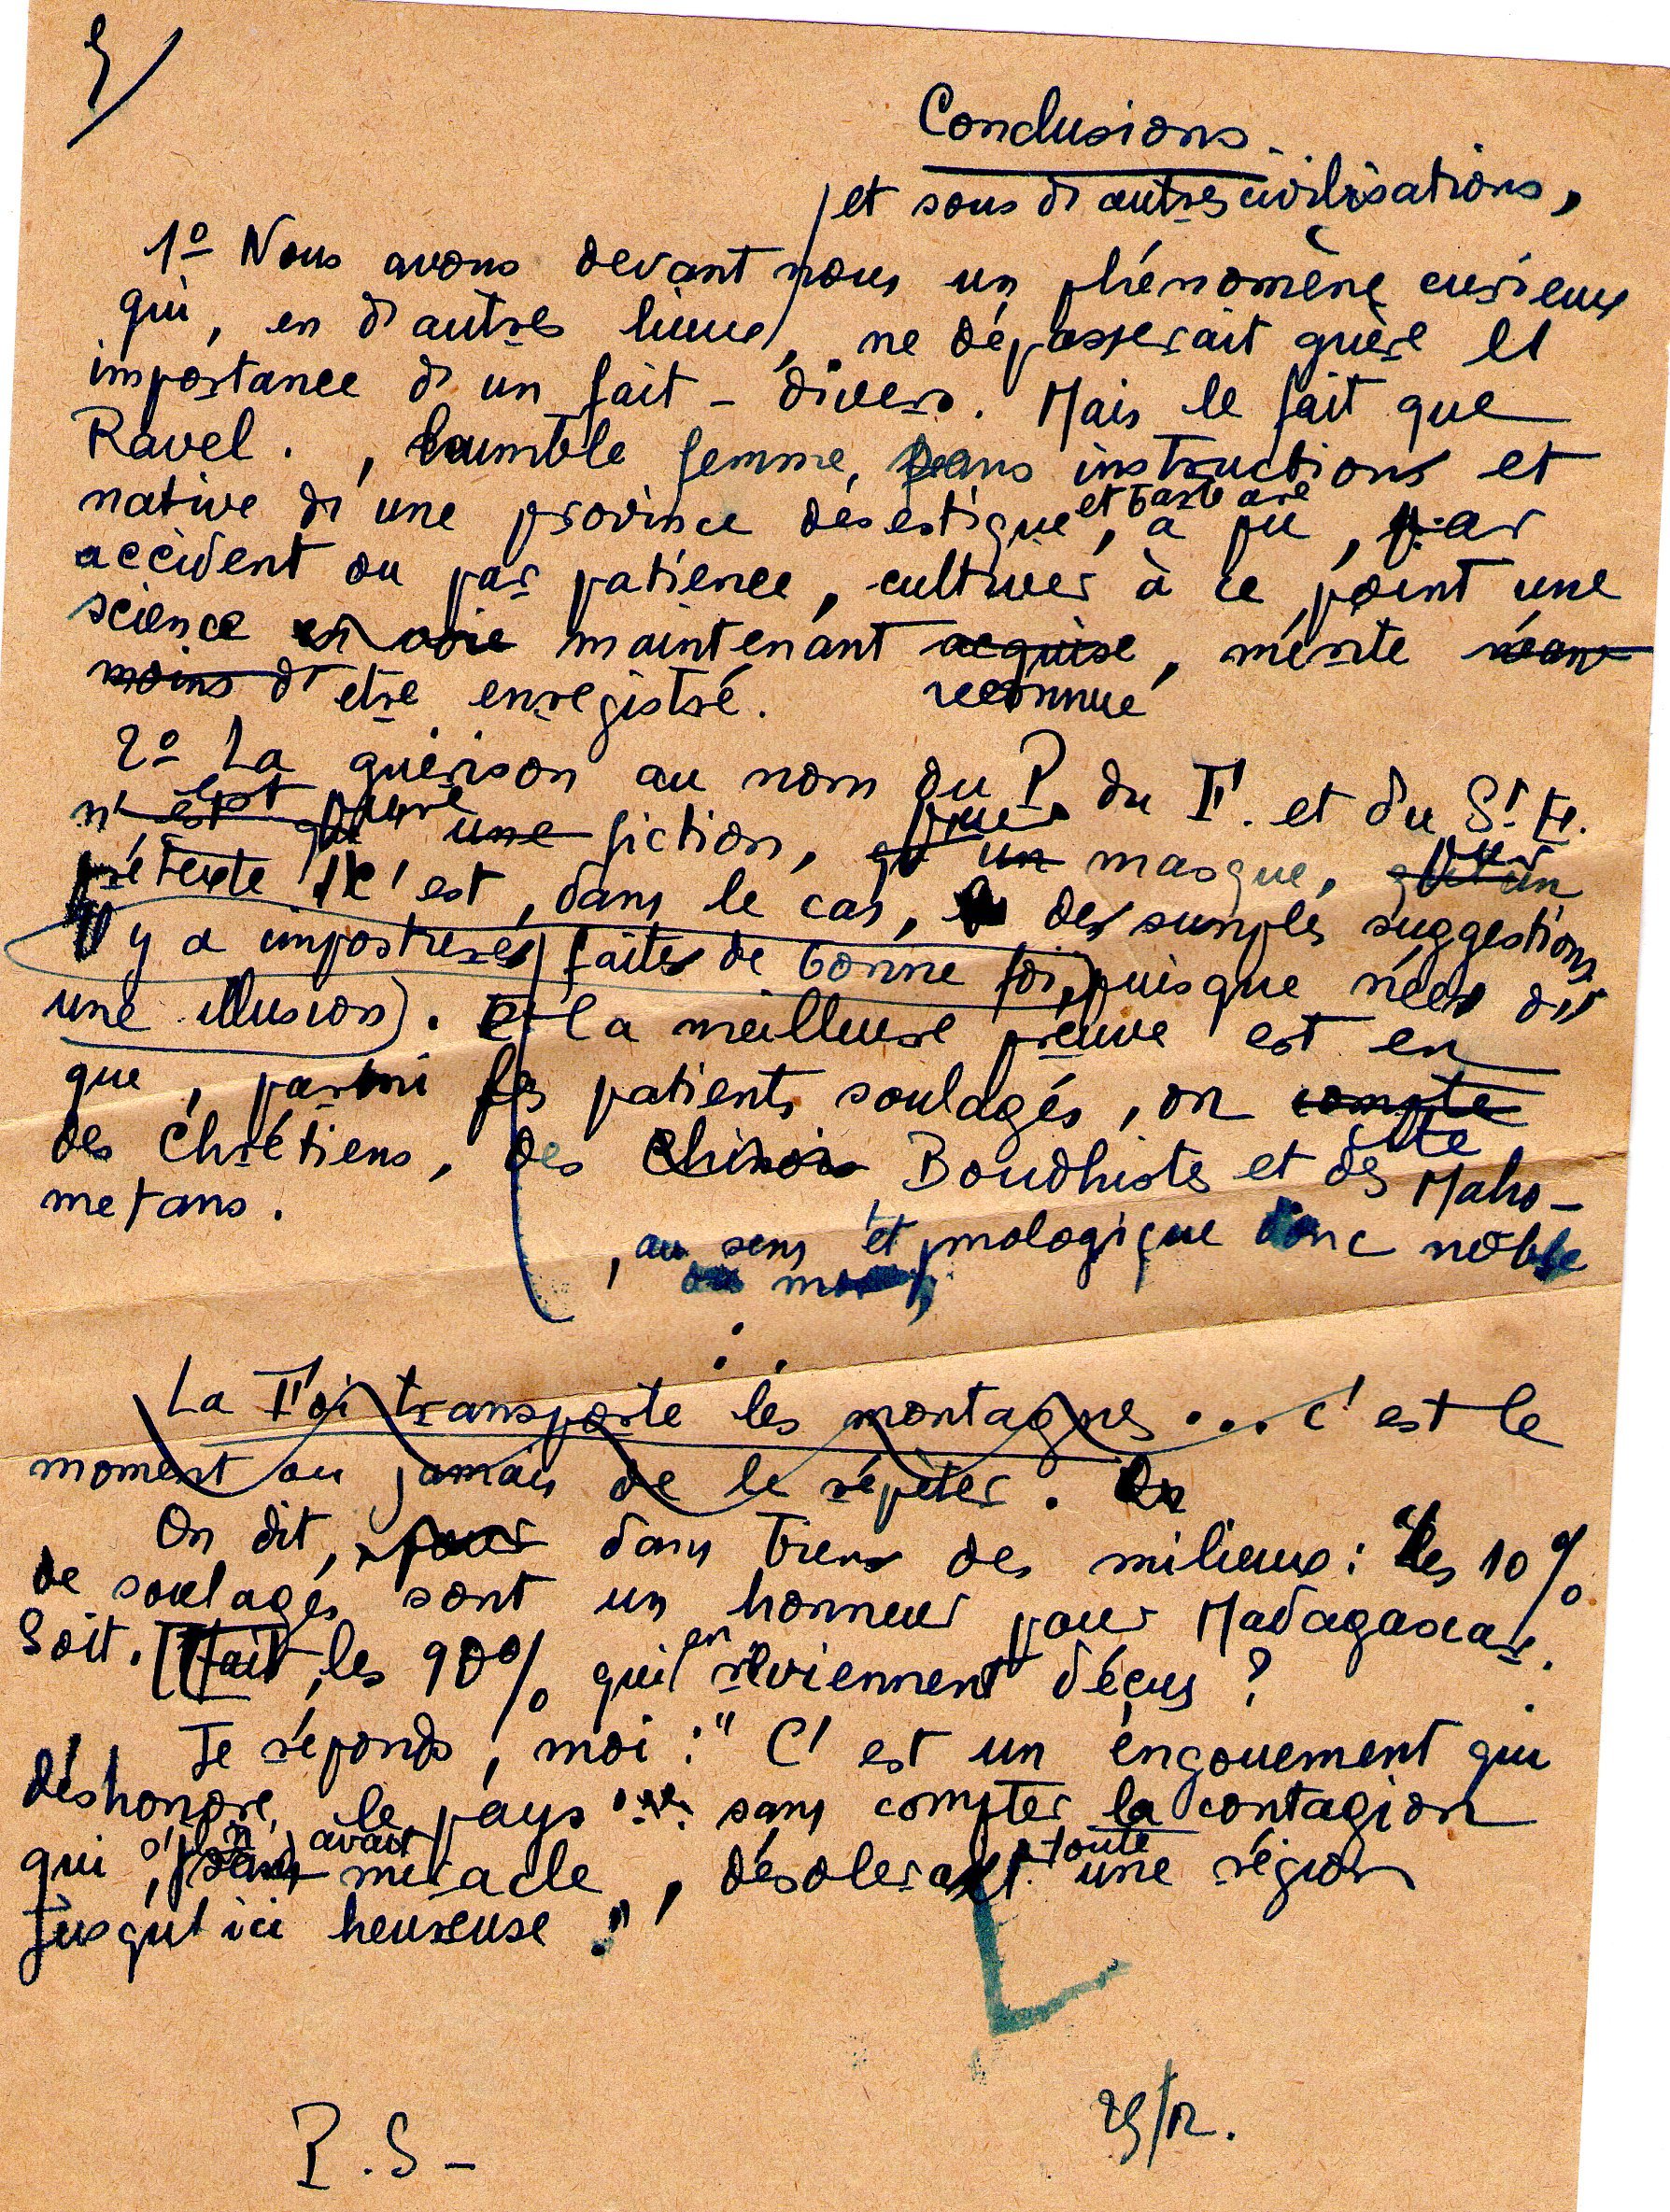 5/
Conclusions.
et sous d'autres civilisations,
1º Nous avons devant nous un phénomène curieux
qui, en d'autres lieux, ne dépasserait guère l'
importance d'un fait-divers. Mais le fait que
Ravel. , humble femme, sans instructions et
native d'une province désertique et barbare, a pu, par
accident ou par patience, cultiver à ce point une
science maintenant acquise, mérite néan
reconnue
moins d'etre enregistré.
2º La guérison au nom du P. du F. et du St. E.
est pure pur pur
n'est qu'une fiction, qu'un masque, qu'un
prétexte c'est, dans le cas, des simples suggestions
Il y a impostures faites de bonne foi, puisque nées d'
une illusion). la meilleure preuve est en
que, parmi les patients soulagés, on compte
cite
des Chrétiens, des Chinois Boudhistes et des Maho-
metans.
, au sens étymologique donc noble
du mot,
La Foi transporte les montagnes... c'est le
moment ou jamais de le répéter. On
On dit, pour dans bien des milieux: "les 10%
de soulagés sont un honneur pour Madagascar.
Soit. les 90% qui en reviennent déçus ?
Je réponds, moi: "C'est un engouement qui
déshonore le pays ... sans compter la contagion
qui, s'il n'y avait miracle, désolerait toute une région
jusqu'ici heureuse."
25/12.
P.S-